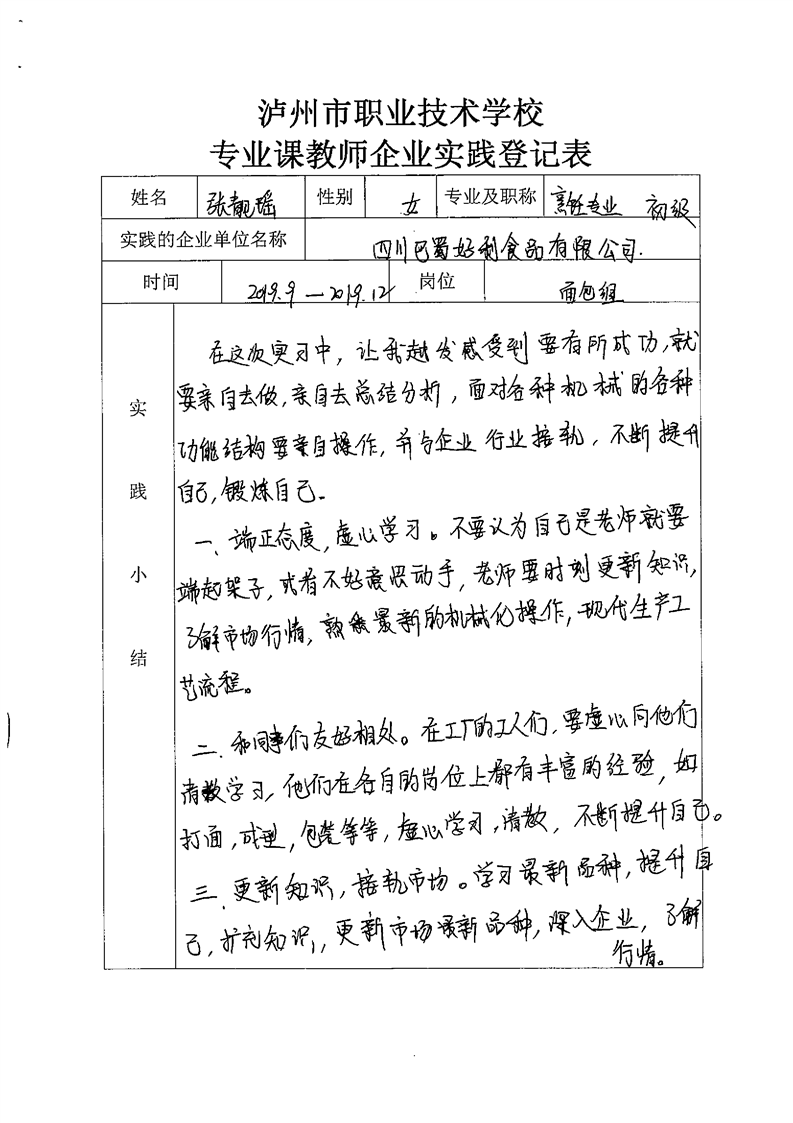 泸州市职业技术学校
专业课教师企业实践登记表
姓名 张靓瑶 性别 女 专业及职称 烹饪专业 初级
实践的企业单位名称 四川巴蜀好利食品有限公司.
时间 2019.9 — 2019.12 岗位 面包组
实践小结
在这次实习中, 让我越发感受到要有所成功, 就
要亲自去做, 亲自去总结分析, 面对各种机械的各种
功能结构要亲自操作, 并与企业行业接轨, 不断提升
自己, 锻炼自己.
一、端正态度, 虚心学习。不要认为自己是老师就要
端起架子, 或者不好意思动手, 老师要时刻更新知识,
了解市场行情, 熟悉最新的机械化操作, 现代生产工
艺流程。
二、和同事们友好相处。在工厂的工人们, 要虚心向他们
请教学习, 他们在各自的岗位上都有丰富的经验, 如
打面, 成型, 包装等等, 虚心学习, 请教, 不断提升自己。
三、更新知识, 接轨市场。学习最新品种, 提升自
己, 扩充知识, 更新市场最新品种, 深入企业, 了解
行情。